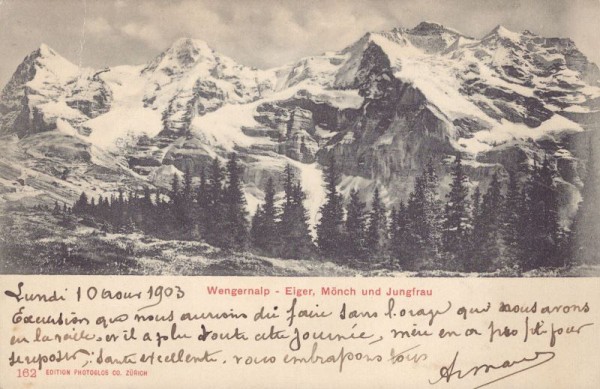 Wengernalp - Eiger, Mönch und Jungfrau
Lundi 10 aout 1903
Excursion que nous aurions dû faire sans l'orage que nous avons
eu la veille et il a plu toute cette journée, mis en a profit pour
se reposer, Santé excellente. nous embrassons tous
Armand
162 EDITION PHOTOGLOB CO. ZÜRICH